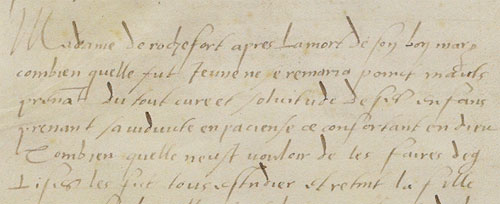 Madame de rochefort apres la mort de son bon mary
combien quelle fut Jeune ne se remaria point mais
prenat du tout cure et solicitude de ses enfans
prenant sa viduite en paciense se confortant en dieu
Combien quelle neust vouloir de les faires deg
Lises les fist tous estudier et retint la fille